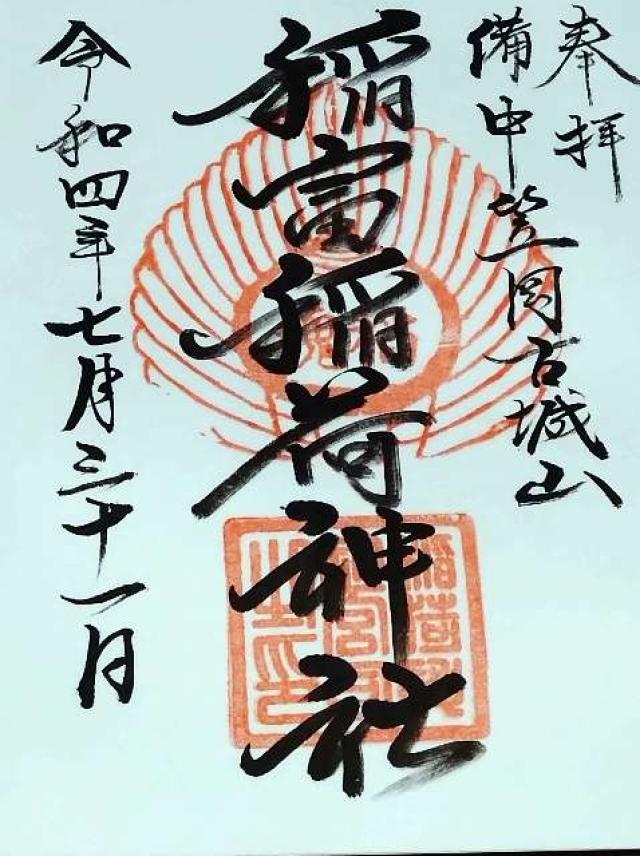 奉拝
備中笠岡古城山
稲富稲荷神社
令和四年七月三十一日